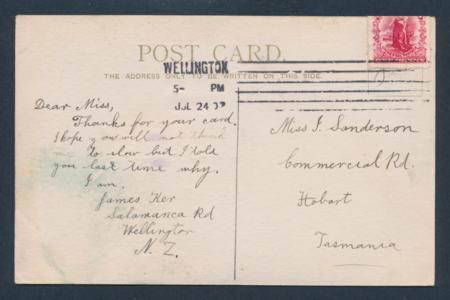 POST CARD.
WELLINGTON
THE ADDRESS ONLY TO BE WRITTEN ON THIS SIDE.
5- PM
JUL 24
Dear Miss,
Thanks for your card.
I hope you will not think
me to slow but I told
you last time why.
I am.
James Ker
Salamanca Rd
Wellington
N. Z.
Miss J. Sanderson
Commercial Rd.
Hobart
Tasmania